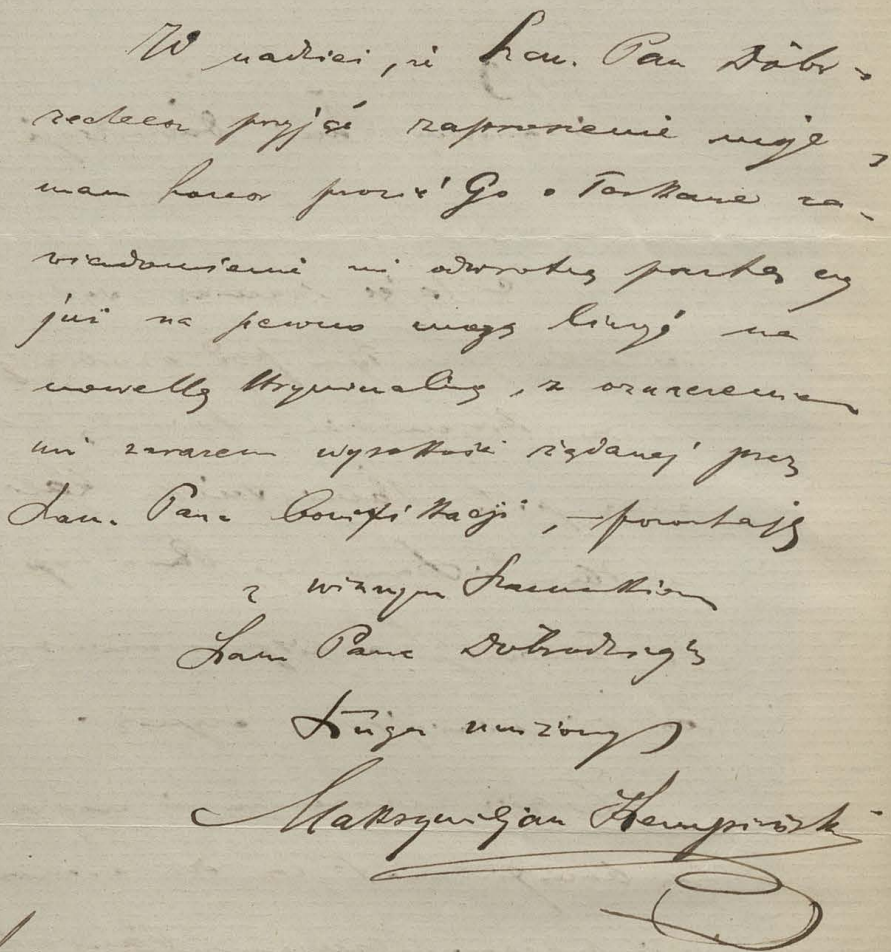 W nadziei, że Szan. Pan Dobr.
zechcesz przyjąć zaproszenie moje,
mam honor prosić Go o łaskawe za-
wiadomienie mi odwrotną pocztą czy
już na pewno mogę liczyć na
nowellę kryminalną, z oznaczeniem
mi zarazem wysokości żądanej przez
Szan. Pana bonifikacji, – pozostaję
z winnym szacunkiem
Szan Pana Dobrodzieja
Sługa uniżony
Maksymiljan